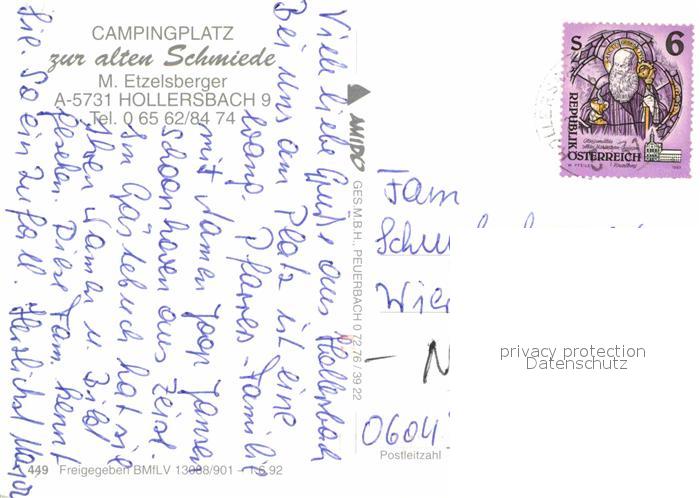 CAMPINGPLATZ
zur alten Schmiede
M. Etzelsberger
A-5731 HOLLERSBACH 9
Tel. 0 65 62/84 74
Viele liebe Grüße aus Hollersbach
Bei uns am Platz ist eine
evang. Pfarrers-Familie
mit Namen Joop Jansen
schoonhoven aus Zeist.
Im Gästebuch hat sie
Ihren Namen u. Bild
gesehen. Diese Fam. kennt
Sie. So ein Zufall. Herzlichst
AMIDO
GES.M.B.H., PEUERBACH 0 72 76 / 39 22
S 6
REPUBLIK
ÖSTERREICH
Fam
Wie
- N
0604
Postleitzahl
privacy protection
Datenschutz
449 Freigegeben BMfLV 13088/901 – 1.6.92